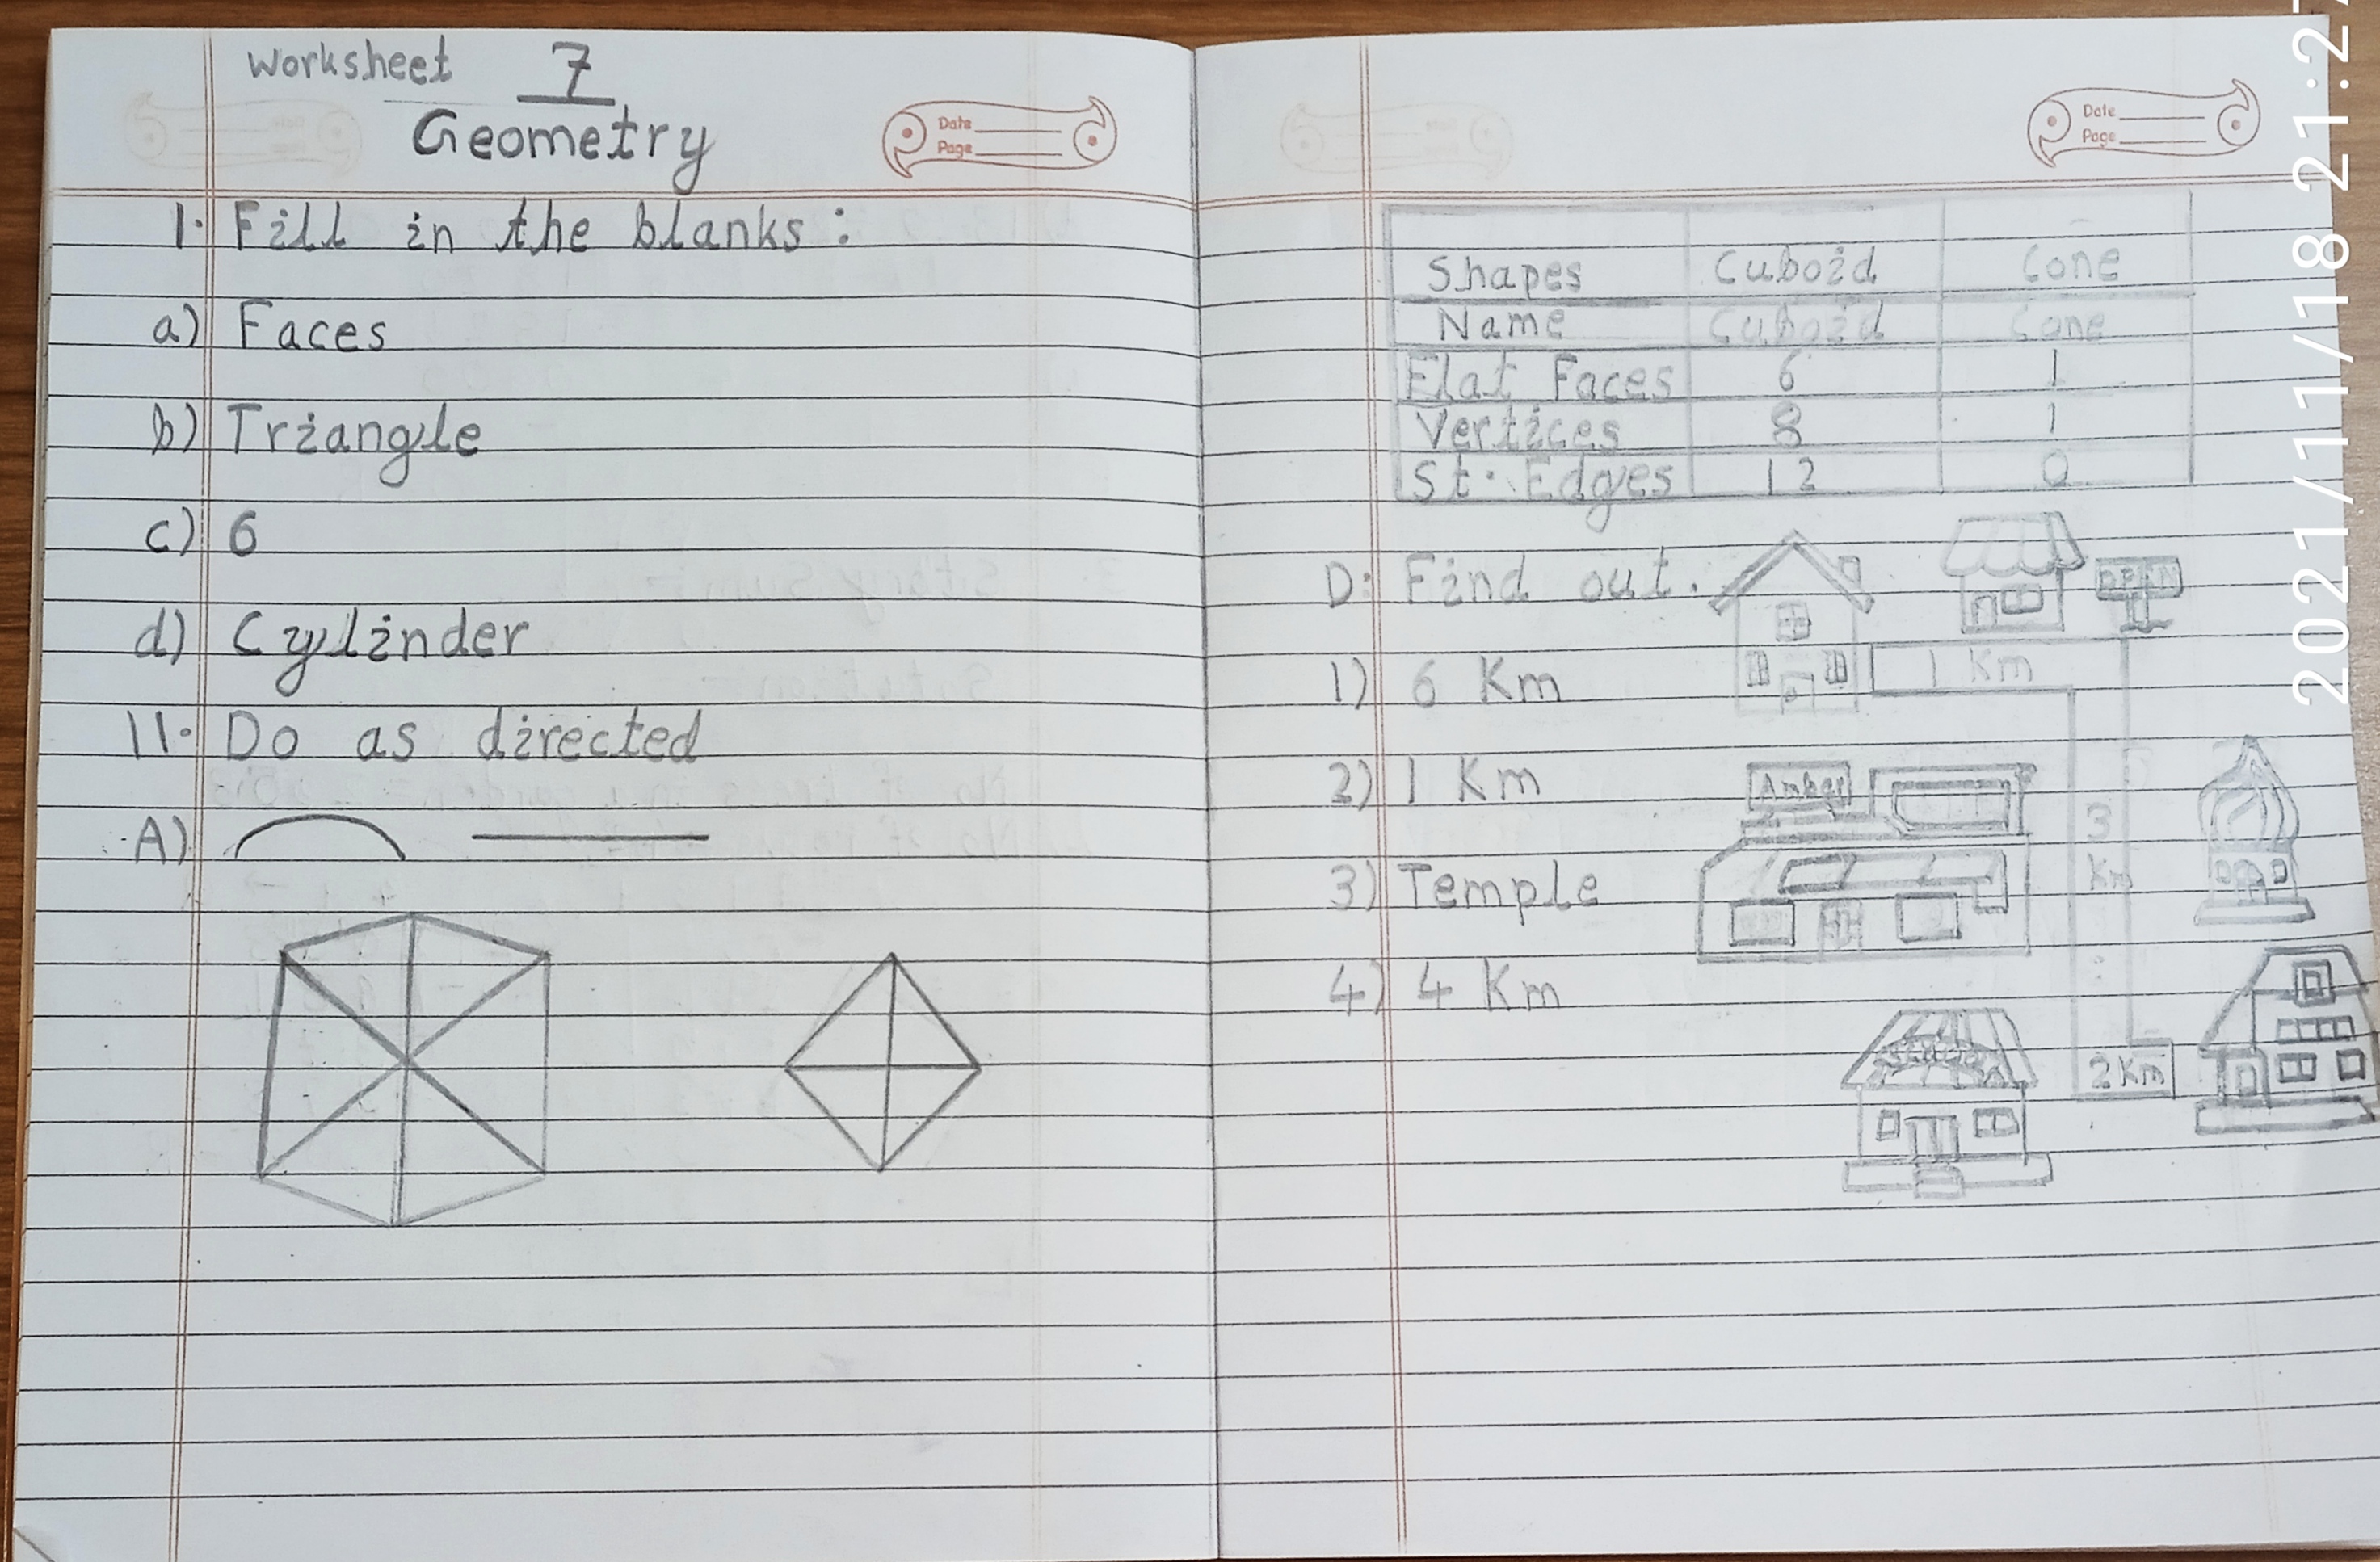 Worksheet 7
Geometry
Date
Page
1. Fill in the blanks :
a) Faces
b) Triangle
c) 6
d) Cylinder
11. Do as directed
A)
Date
Page
Shapes Cuboid Cone
Name Cuboid Cone
Flat Faces 6 1
Vertices 8 1
St. Edges 12 0
D: Find out.
OPEN
1) 6 Km
1 Km
2) 1 Km
Amber
3
Km
3) Temple
4) 4 Km
2 Km
2021/11/18 21:27